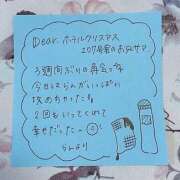 Dear. ホテルクリスタス
207号室のお兄サマ
3週間ぶりの再会っ
今日はらんがいっぱい
攻めちゃった
2回もいってくれて
幸せだったー
らんより